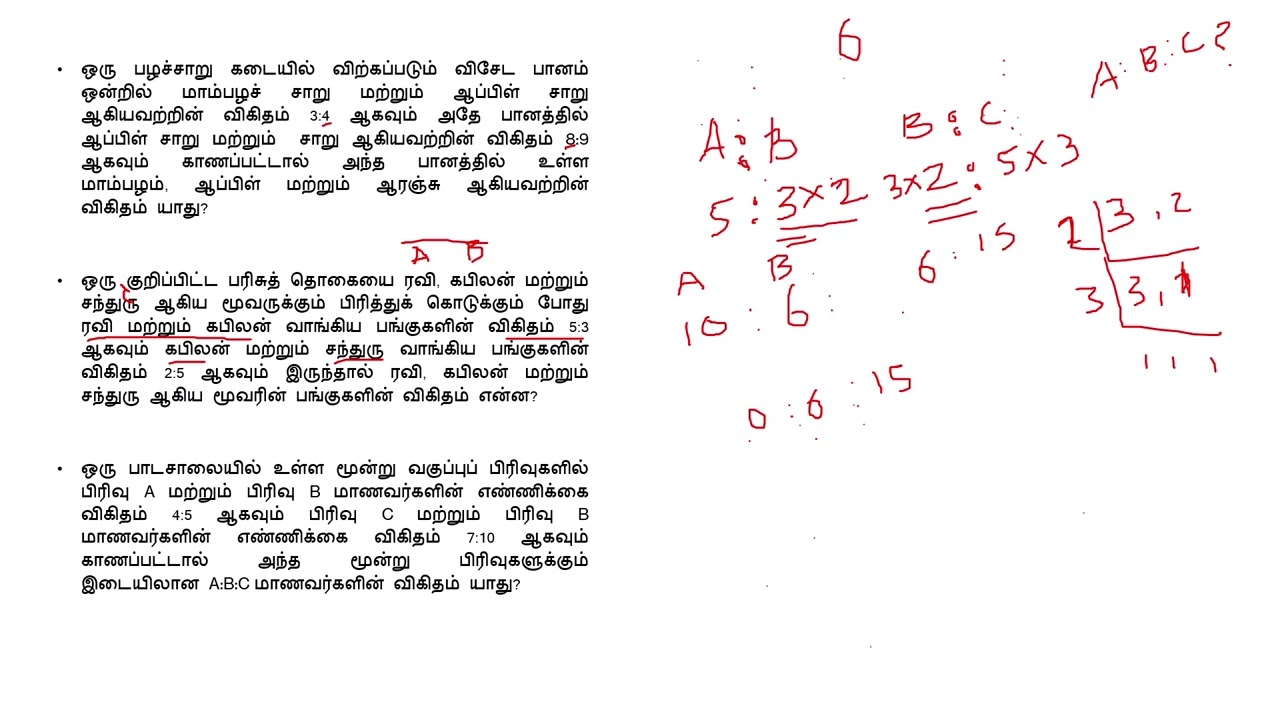 • ஒரு பழச்சாறு கடையில் விற்கப்படும் விசேட பானம்
ஒன்றில் மாம்பழச் சாறு மற்றும் ஆப்பிள் சாறு
ஆகியவற்றின் விகிதம் 3:4 ஆகவும் அதே பானத்தில்
ஆப்பிள் சாறு மற்றும் சாறு ஆகியவற்றின் விகிதம் 8:9
ஆகவும் காணப்பட்டால் அந்த பானத்தில் உள்ள
மாம்பழம், ஆப்பிள் மற்றும் ஆரஞ்சு ஆகியவற்றின்
விகிதம் யாது?
A B
• ஒரு குறிப்பிட்ட பரிசுத் தொகையை ரவி, கபிலன் மற்றும்
சந்துரு ஆகிய மூவருக்கும் பிரித்துக் கொடுக்கும் போது
ரவி மற்றும் கபிலன் வாங்கிய பங்குகளின் விகிதம் 5:3
ஆகவும் கபிலன் மற்றும் சந்துரு வாங்கிய பங்குகளின்
விகிதம் 2:5 ஆகவும் இருந்தால் ரவி, கபிலன் மற்றும்
சந்துரு ஆகிய மூவரின் பங்குகளின் விகிதம் என்ன?
• ஒரு பாடசாலையில் உள்ள மூன்று வகுப்புப் பிரிவுகளில்
பிரிவு A மற்றும் பிரிவு B மாணவர்களின் எண்ணிக்கை
விகிதம் 4:5 ஆகவும் பிரிவு C மற்றும் பிரிவு B
மாணவர்களின் எண்ணிக்கை விகிதம் 7:10 ஆகவும்
காணப்பட்டால் அந்த மூன்று பிரிவுகளுக்கும்
இடையிலான A:B:C மாணவர்களின் விகிதம் யாது?
6
A:B:C?
A:B B:C
5:3×2 3×2:5×3
6:15
A B
10:6:
0:6:15
2 3,2
3 3,1
1 1 1